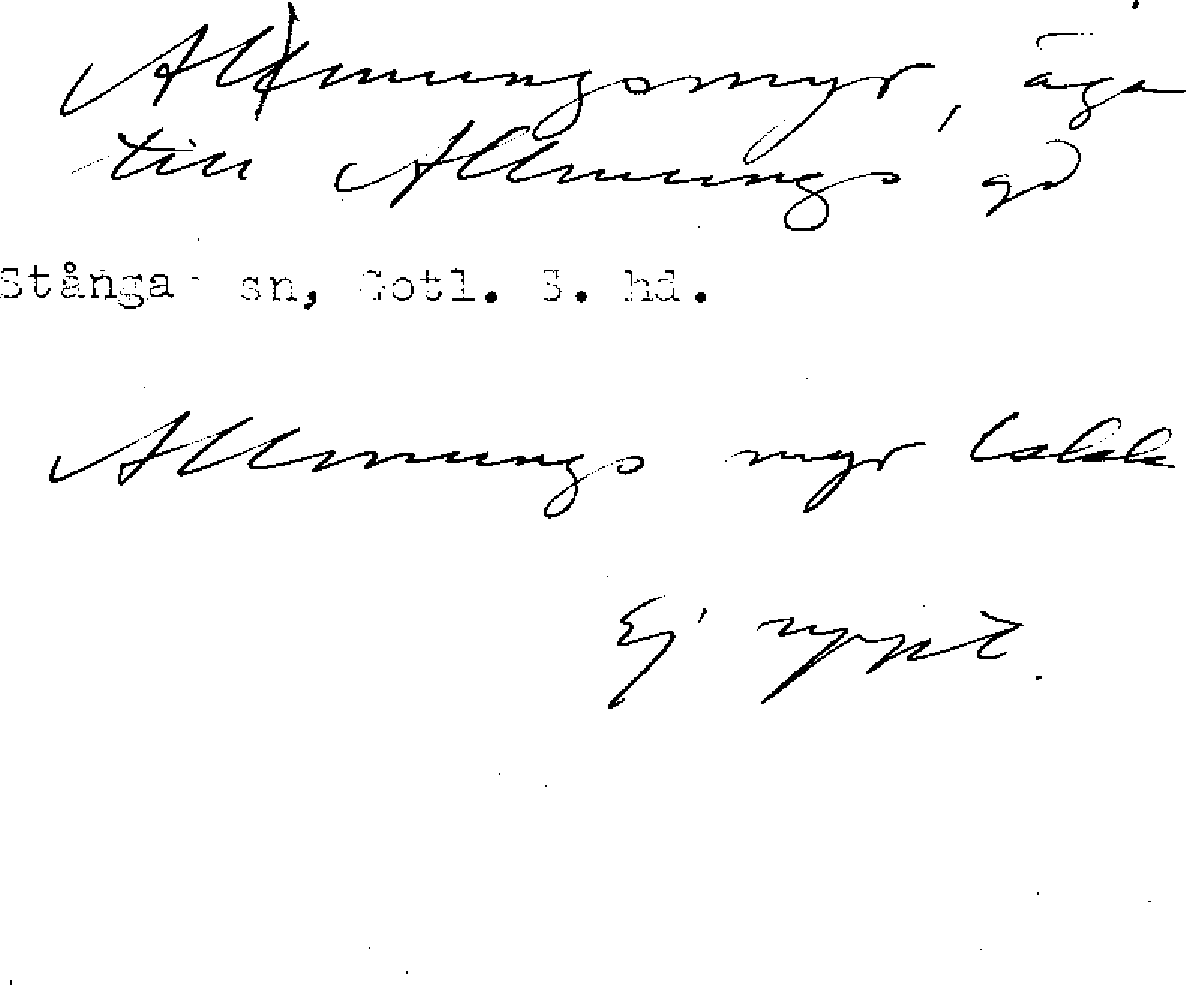 Allmungsmyr, äga
till Allmungs gd
Stånga sn, Gotl. S. hd.
Allmungs myr
Ej uppt.